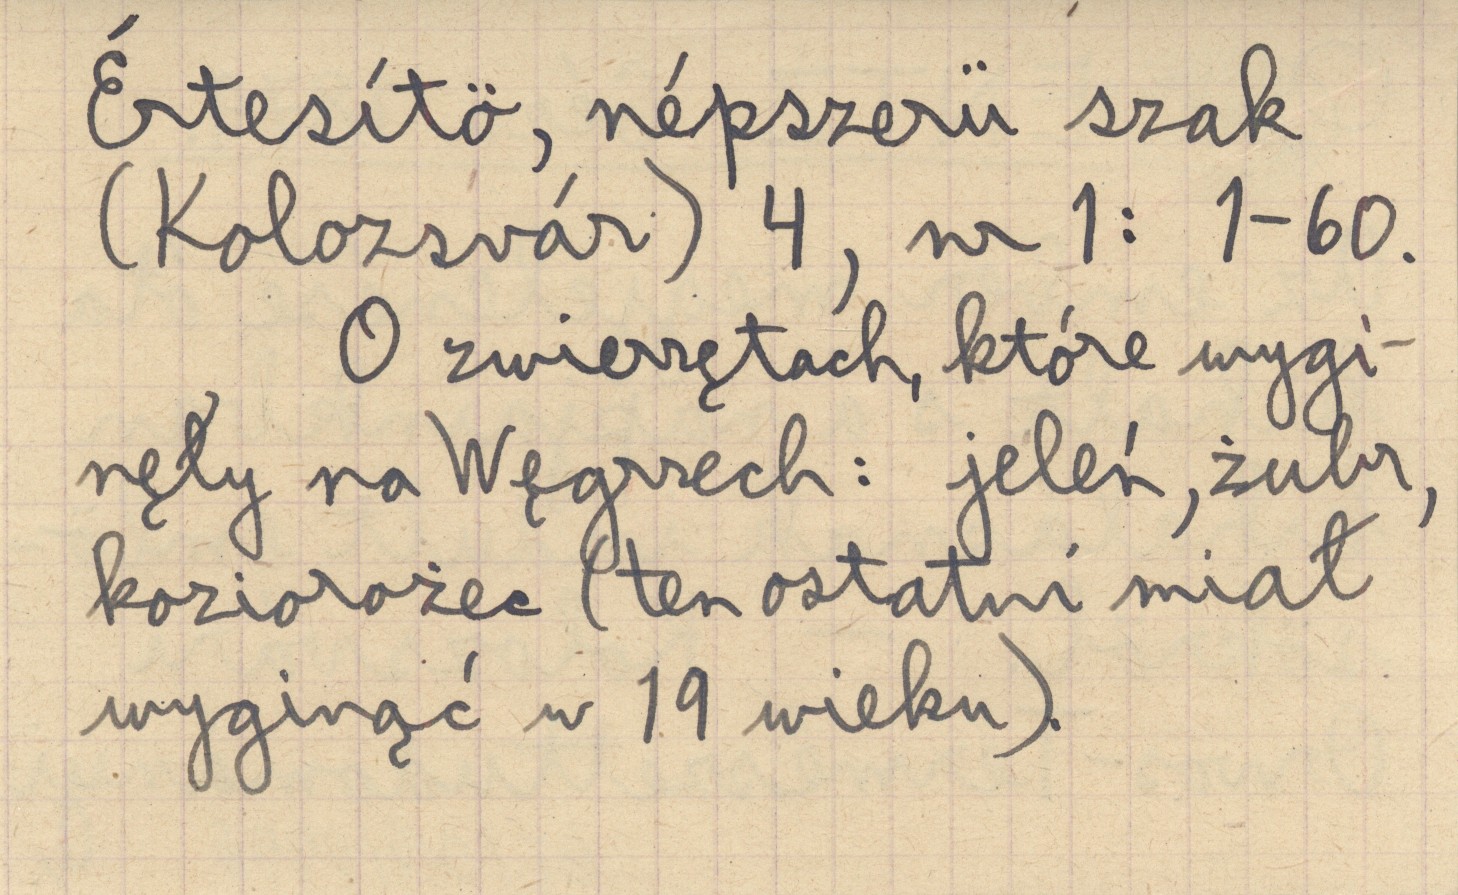 Értesítö, népszerü szak
(Kolozsvár) 4, nr 1: 1-60.
O zwierzętach, które wygi-
nęły na Węgrzech: jeleń, żubr,
koziorożec (ten ostatni miał
wyginąć w 19 wieku).